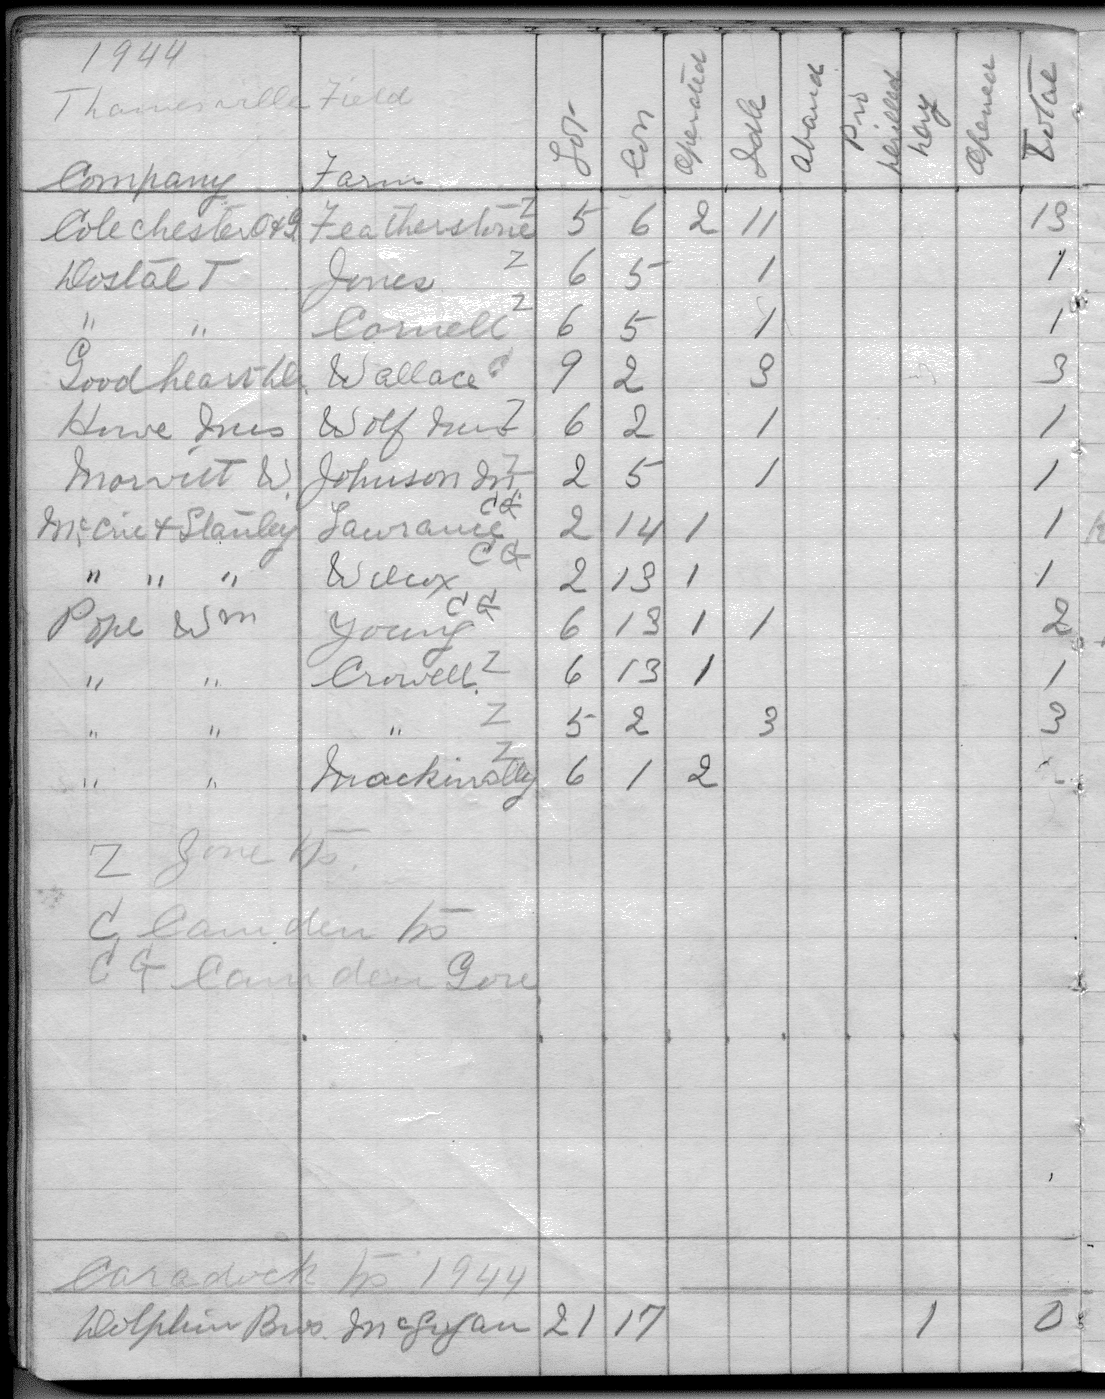 1944
Thamesville Field
Company Farm Lot Con Operated Idle Aband Pro drilled Dry Opened Total
Colechester O & G Featherstone Z 5 6 2 11 13
Dostal T Jones Z 6 5 1 1
" " Cornell Z 6 5 1 1
Goodheart Wallace C 9 2 3 3
Howe Wolf Z 6 2 1 1
W. Johnson Z 2 5 1 1
McCrie & Stanley Lawrance CG 2 14 1 1
" " " Wilcox CG 2 13 1 1
Pope Wm Young CG 6 13 1 1 2
" " Crowell Z 6 13 1 1
" " " Z 5 2 3 3
" " Z 6 1 2
Z Zone
C Camden
CG Camden Gore
Caradock 1944
Dolphin Bros. McGugan 21 17 1 0